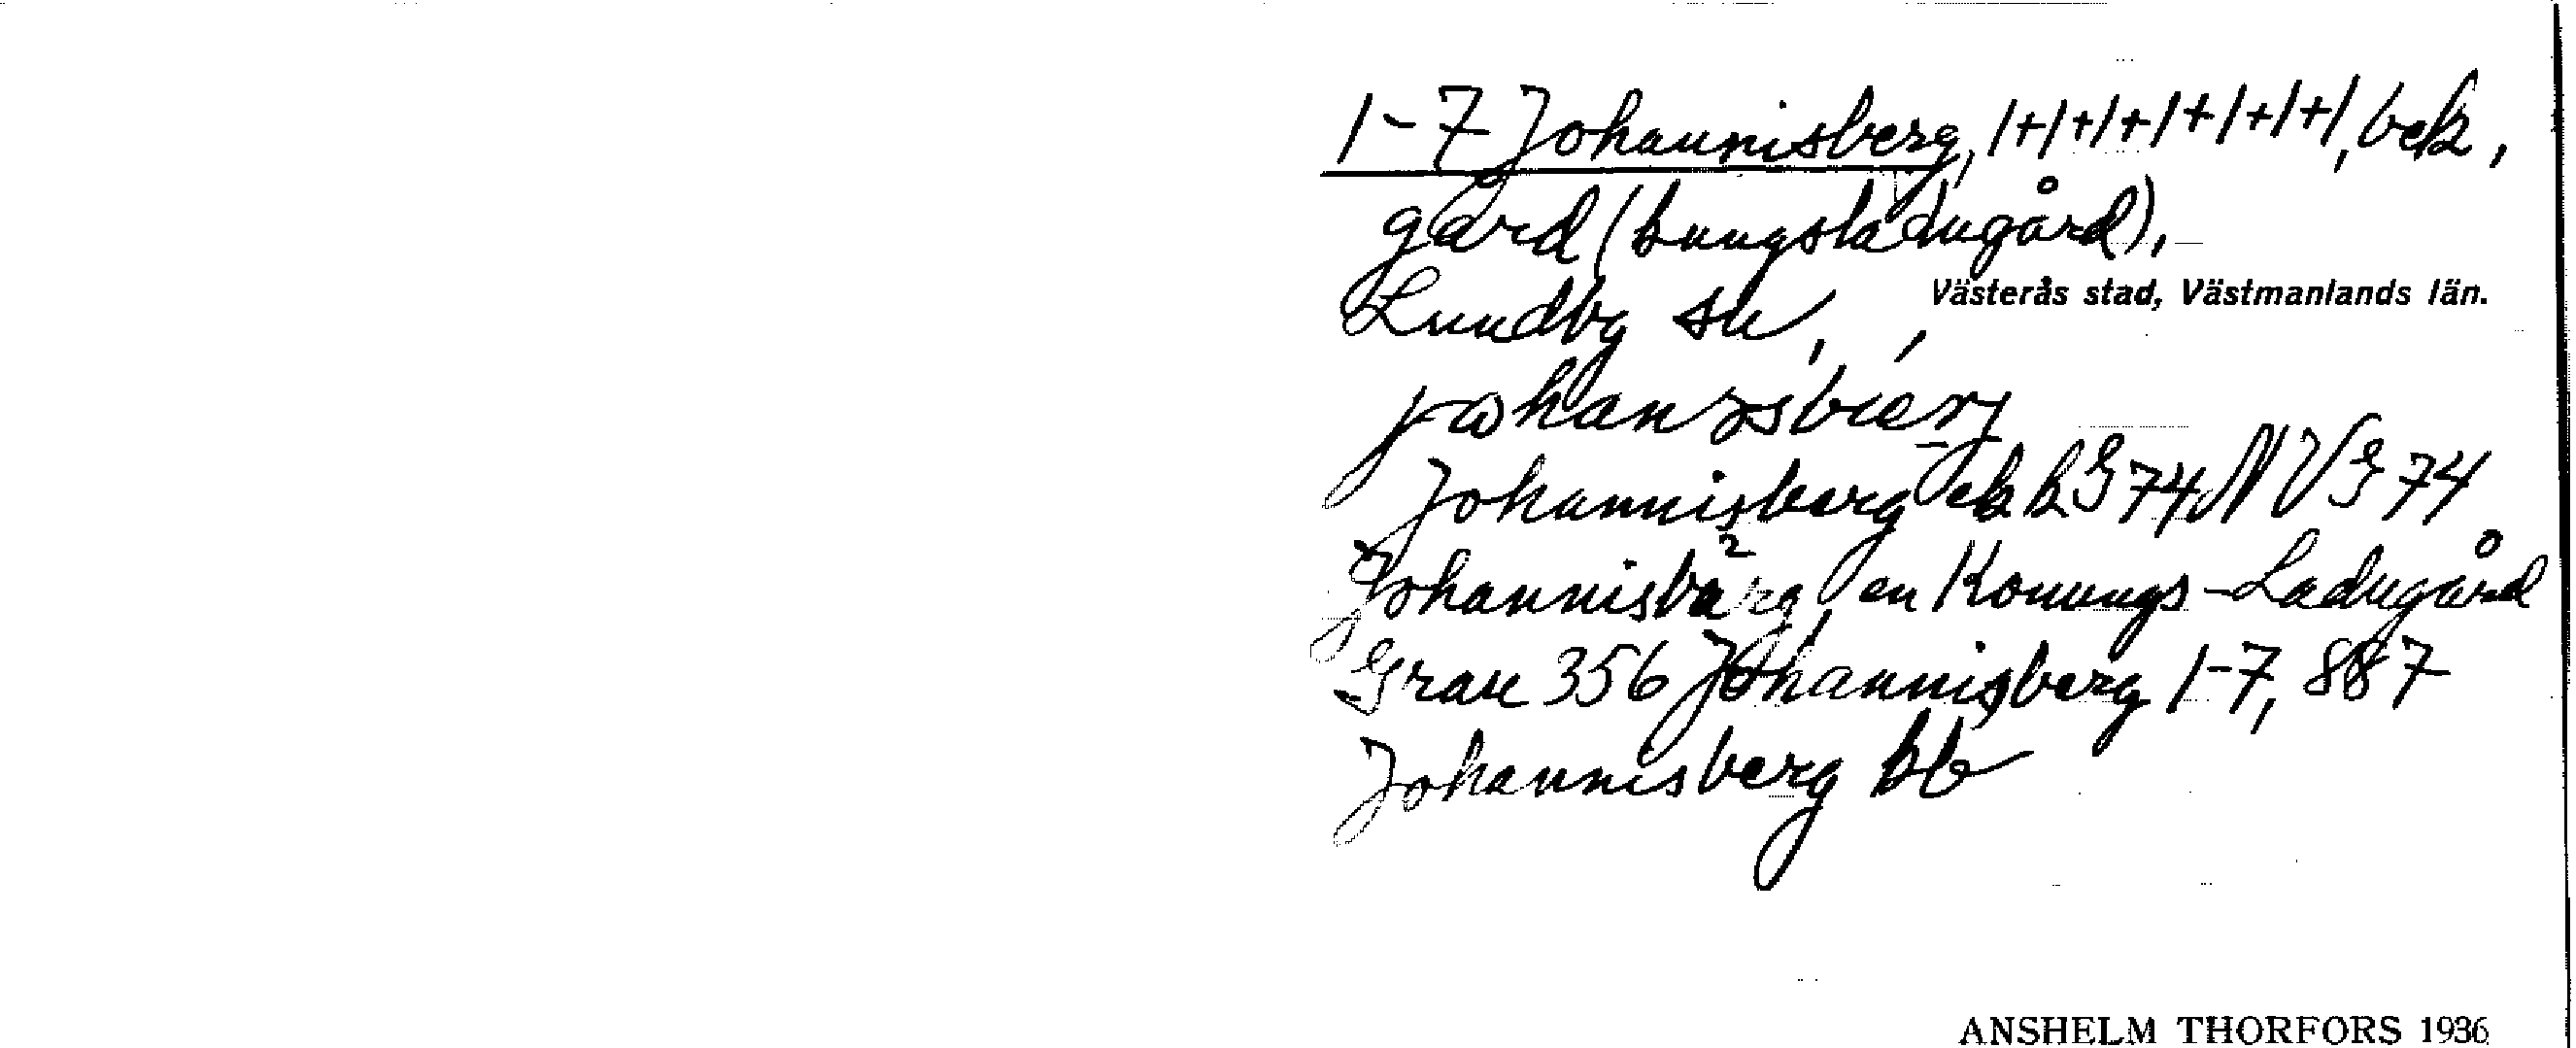 1-7 Johannisberg, 1+1+1+1+1+1+1, bek,
gård (kungsladugård),
Lundby sn,
Västerås stad, Västmanlands län.
Johannisberg ek LG 74 NVG 74
Johannisbärg en Konungs-Ladugård
Grau 356 Johannisberg 1-7, 887
Johannisberg bb
ANSHELM THORFORS 1936